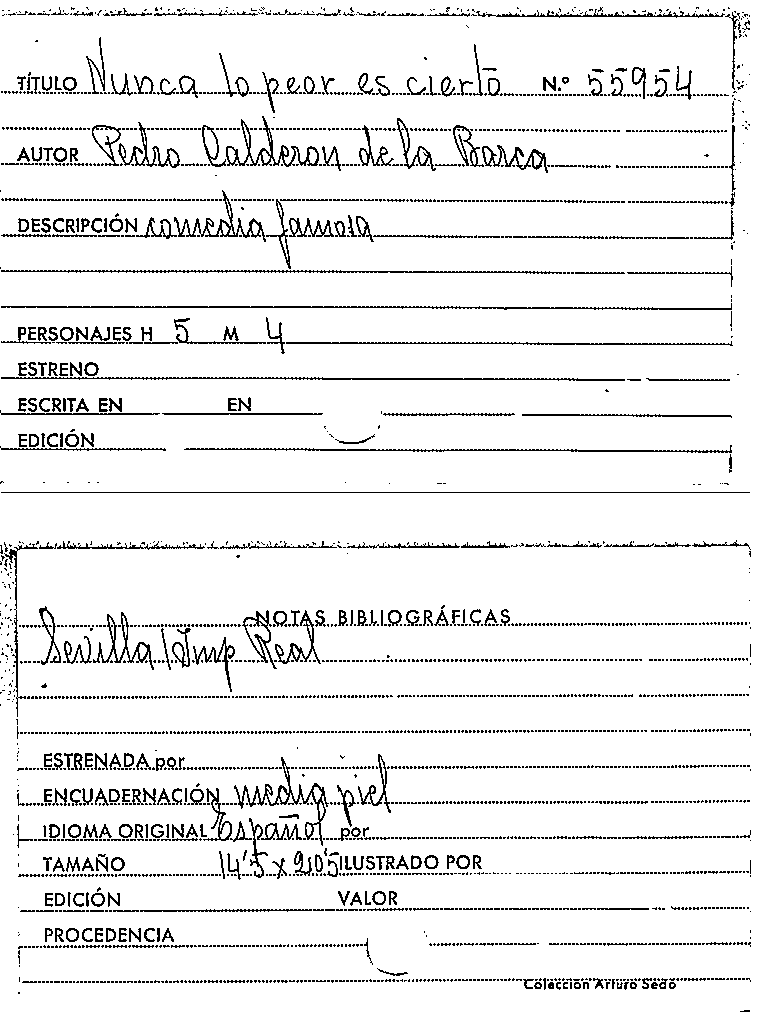 TÍTULO Nunca lo peor es cierto N.º 55954
AUTOR Pedro Calderon de la Barca
DESCRIPCIÓN comedia famosa
PERSONAJES H 5 M 4
ESTRENO
ESCRITA EN EN
EDICIÓN
NOTAS BIBLIOGRÁFICAS
Sevilla/Imp Real
ESTRENADA por
ENCUADERNACIÓN media piel
IDIOMA ORIGINAL Español por
TAMAÑO 14'5 x 20'5 ILUSTRADO POR
EDICIÓN VALOR
PROCEDENCIA
Colección Arturo Sedó